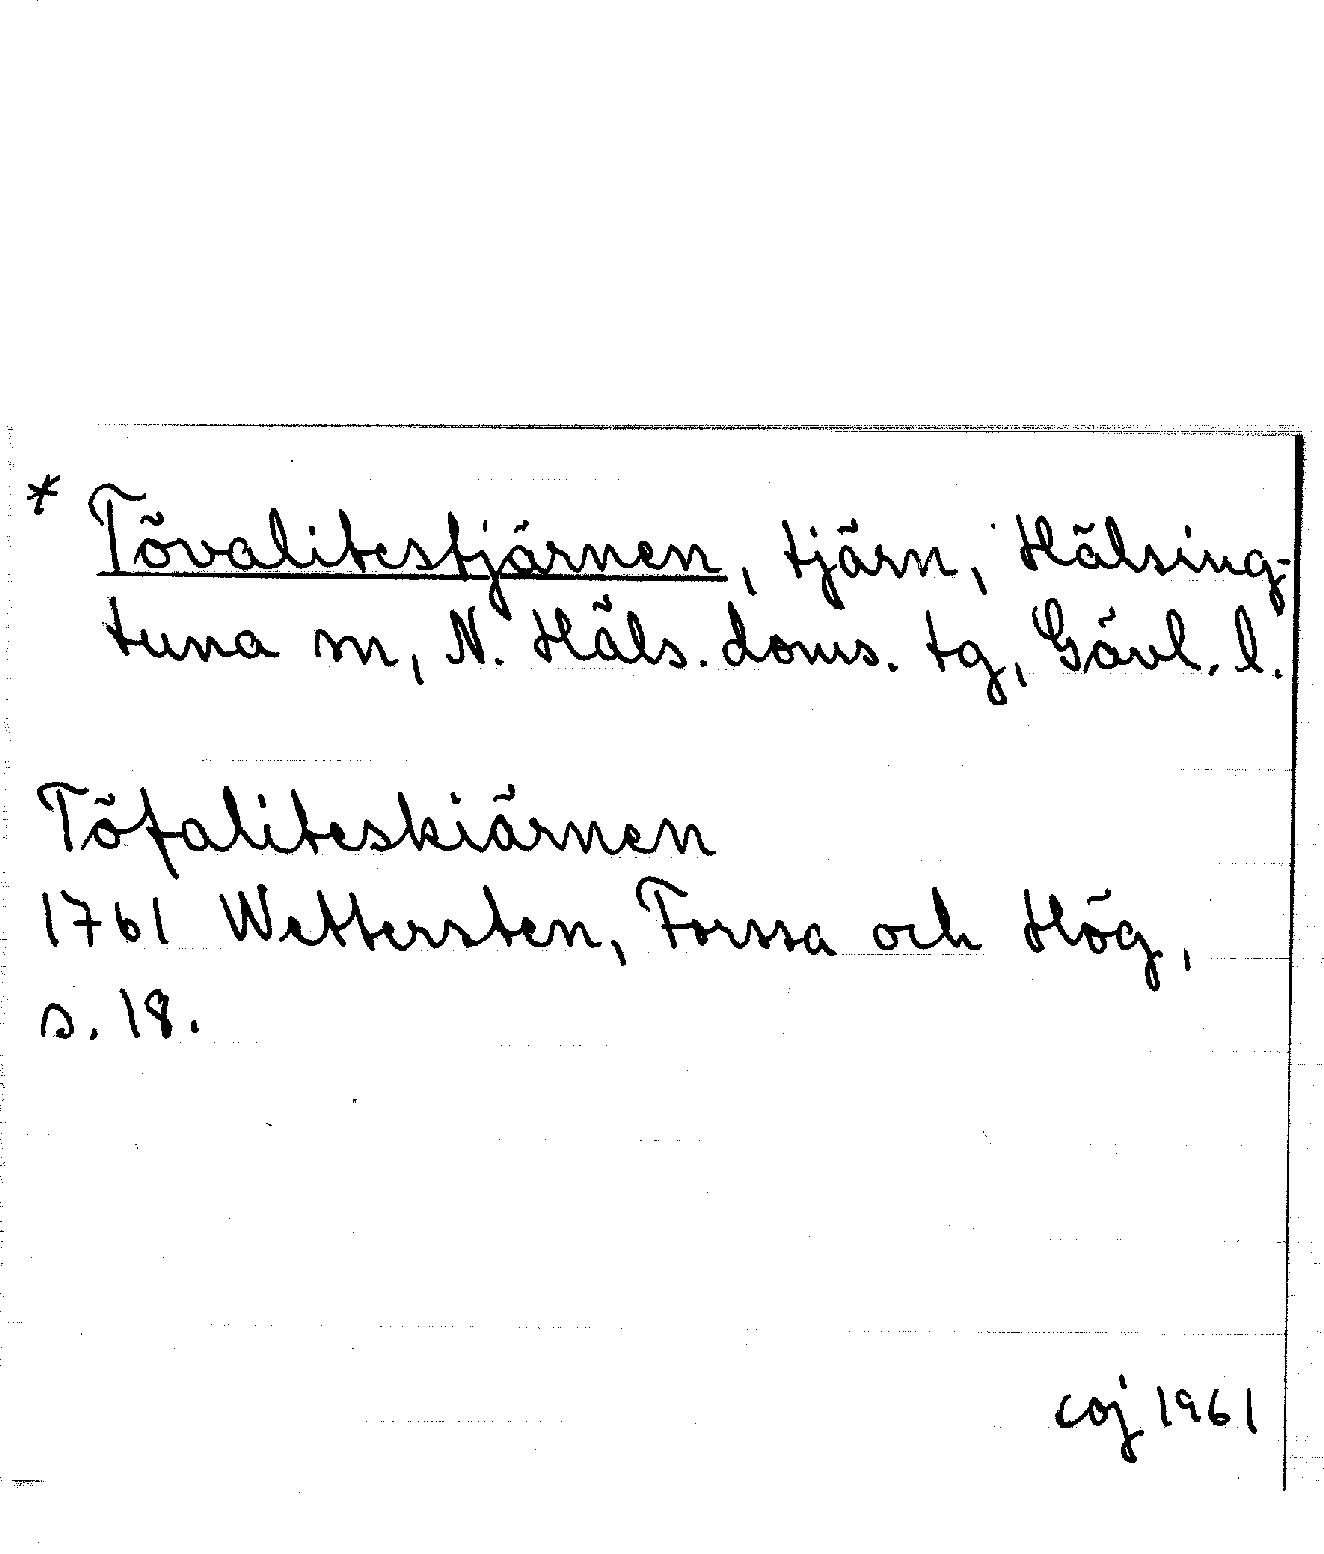 * Tövalitestjärnen, tjärn, Hälsing-
tuna sn, N. Häls. doms. tg, Gävl. l.
Töfaliteskiärnen
1761 Wettersten, Forssa och Hög,
s. 18.
coj 1961